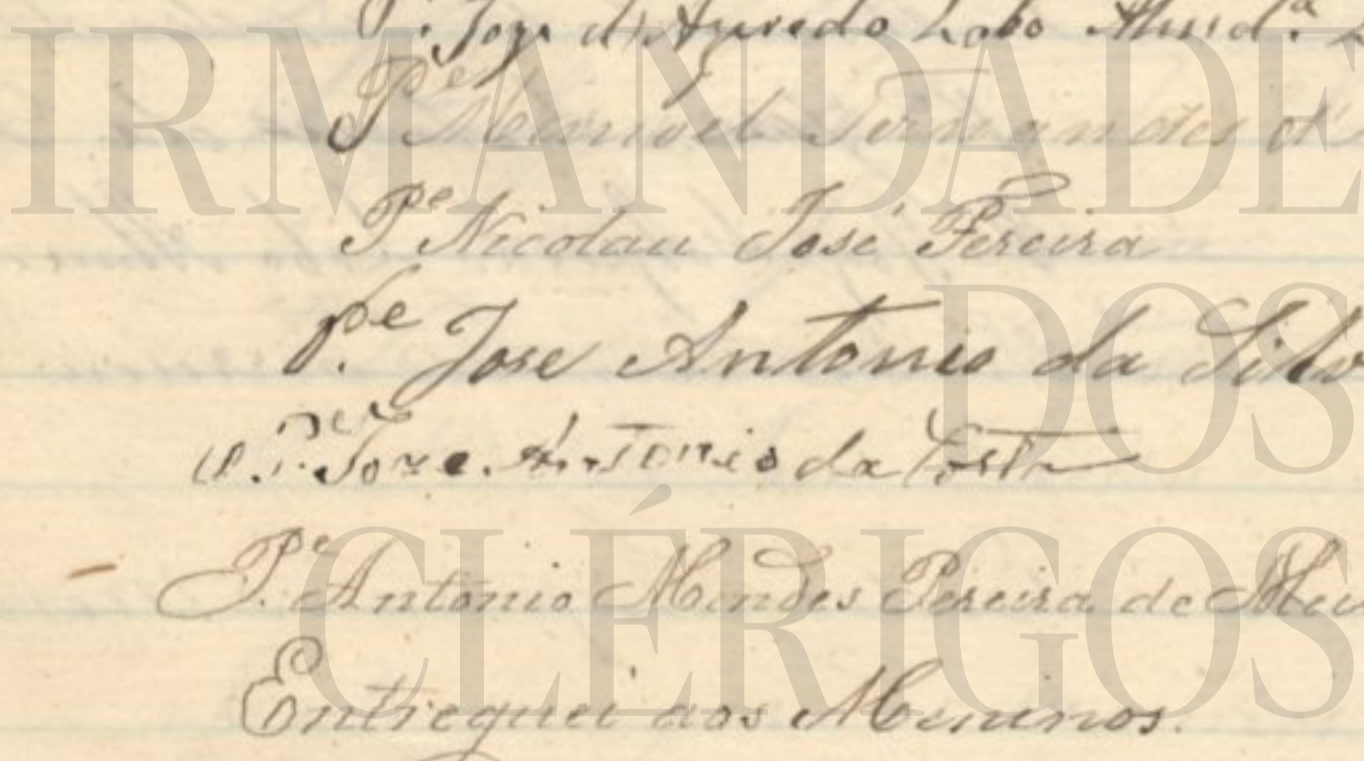 P. Joze d'Azevedo Lobo Almd.ª
P.e Manoel Fernandes d'
P.e Nicolau José Pereira
P.e Jose Antonio da Silv
O P.e Joze Antonio da Costa
P.e Antonio Mendes Pereira de
Entreguei aos Meninos.
IRMANDADE
DOS
CLÉRIGOS